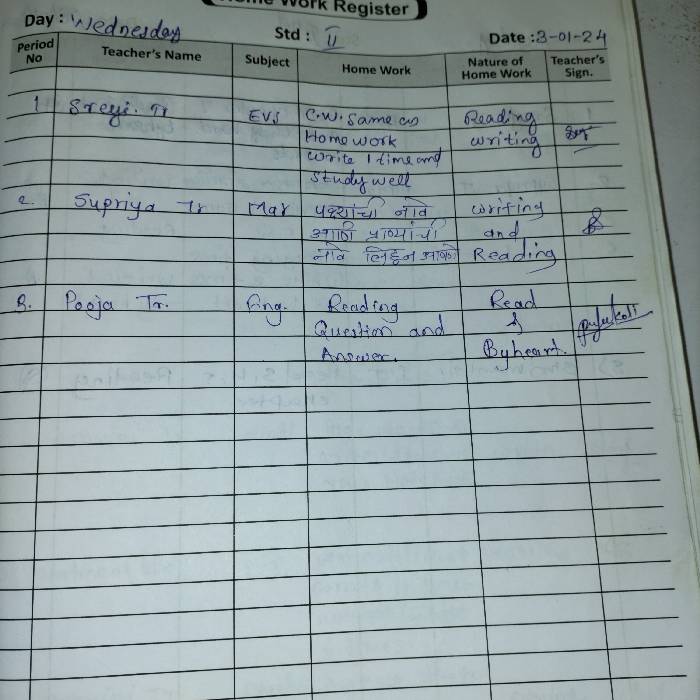 Home Work Register
Day : Wednesday Std : II Date : 3-01-24
Period No Teacher's Name Subject Home Work Nature of Home Work Teacher's Sign.
1 EVS C.W. same as Reading
Home work writing
Write 1 time and
Study well
2. Supriya Tr Mar पक्ष्यांची नावे writing
आणि प्राण्यांची and
नावे लिहून आणणे Reading
3. Pooja Tr. Eng. Reading Read
Question and &
Answer. Byheart.